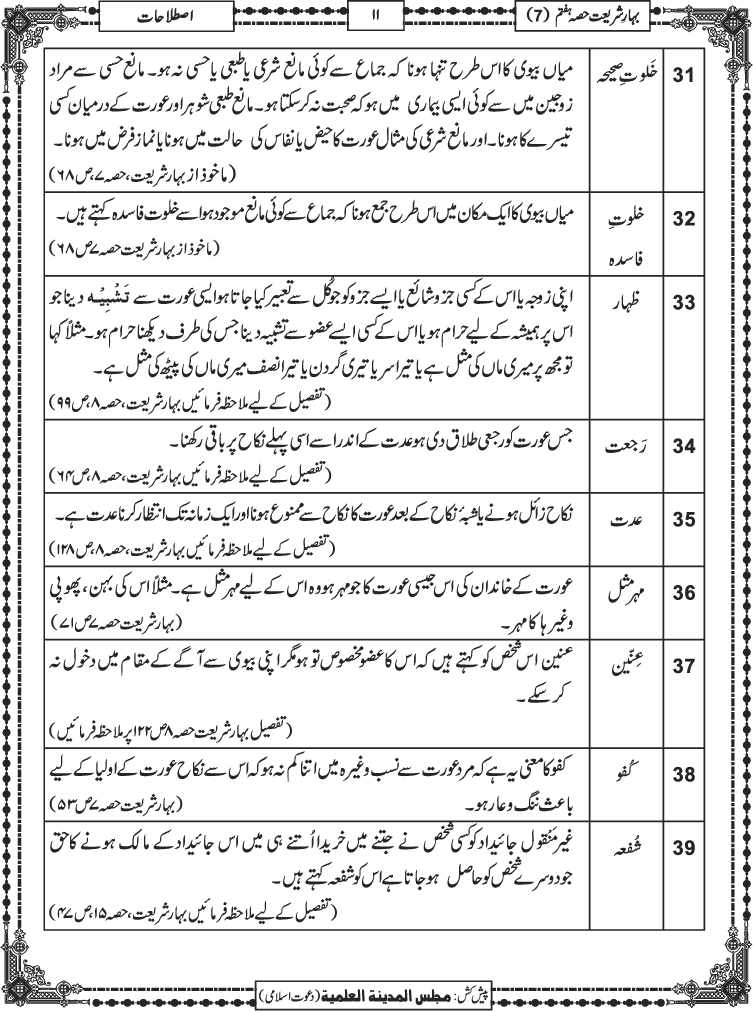 بہارِ شریعت حصہ ہفتم (7)
۱۱
اصطلاحات
31
خَلوتِ صحیحہ
میاں بیوی کا اس طرح تنہا ہونا کہ جماع سے کوئی مانع شرعی یا طبعی یا حسی نہ ہو۔ مانع حسی سے مراد
زوجین میں سے کوئی ایسی بیماری میں ہو کہ صحبت نہ کر سکتا ہو۔ مانع طبعی شوہر اور عورت کے درمیان کسی
تیسرے کا ہونا۔ اور مانع شرعی کی مثال عورت کا حیض یا نفاس کی حالت میں ہونا یا نماز فرض میں ہونا۔
(ماخوذ از بہار شریعت، حصہ ۷، ص ۶۸)
32
خلوتِ
فاسدہ
میاں بیوی کا ایک مکان میں اس طرح جمع ہونا کہ جماع سے کوئی مانع موجود ہو اسے خلوت فاسدہ کہتے ہیں۔
(ماخوذ از بہار شریعت حصہ ۷ ص ۶۸)
33
ظہار
اپنی زوجہ یا اس کے کسی جزو شائع یا ایسے جزو کو جو کُل سے تعبیر کیا جاتا ہو ایسی عورت سے تَشْبِیْہ دینا جو
اس پر ہمیشہ کے لیے حرام ہو یا اس کے کسی ایسے عضو سے تشبیہ دینا جس کی طرف دیکھنا حرام ہو۔ مثلاً کہا
تو مجھ پر میری ماں کی مثل ہے یا تیرا سر یا تیری گردن یا تیرا نصف میری ماں کی پیٹھ کی مثل ہے۔
(تفصیل کے لیے ملاحظہ فرمائیں بہار شریعت، حصہ ۸، ص ۹۹)
34
رَجعت
جس عورت کو رجعی طلاق دی ہو عدت کے اندر اسے اسی پہلے نکاح پر باقی رکھنا۔
(تفصیل کے لیے ملاحظہ فرمائیں بہار شریعت، حصہ ۸، ص ۶۴)
35
عدت
نکاح زائل ہونے یا شبۂ نکاح کے بعد عورت کا نکاح سے ممنوع ہونا اور ایک زمانہ تک انتظار کرنا عدت ہے۔
(تفصیل کے لیے ملاحظہ فرمائیں بہار شریعت، حصہ ۸، ص ۱۲۸)
36
مہر مثل
عورت کے خاندان کی اس جیسی عورت کا جو مہر ہو وہ اس کے لیے مہر مثل ہے۔ مثلاً اس کی بہن، پھوپی
وغیرہا کا مہر۔ (بہار شریعت حصہ ۷ ص ۷۱)
37
عِنّین
عنین اس شخص کو کہتے ہیں کہ اس کا عضو مخصوص تو ہو مگر اپنی بیوی سے آگے کے مقام میں دخول نہ
کر سکے۔
(تفصیل بہار شریعت حصہ ۸ ص ۱۲۲ پر ملاحظہ فرمائیں)
38
کُفو
کفو کا معنی یہ ہے کہ مرد عورت سے نسب وغیرہ میں اتنا کم نہ ہو کہ اس سے نکاح عورت کے اولیا کے لیے
باعث ننگ و عار ہو۔ (بہار شریعت حصہ ۷ ص ۵۳)
39
شُفعہ
غیر مَنقول جائیداد کو کسی شخص نے جتنے میں خریدا اُتنے ہی میں اس جائیداد کے مالک ہونے کا حق
جو دوسرے شخص کو حاصل ہو جاتا ہے اس کو شفعہ کہتے ہیں۔
(تفصیل کے لیے ملاحظہ فرمائیں بہار شریعت، حصہ ۱۵، ص ۴۷)
پیش کش: مجلس المدینة العلمیة (دعوت اسلامی)